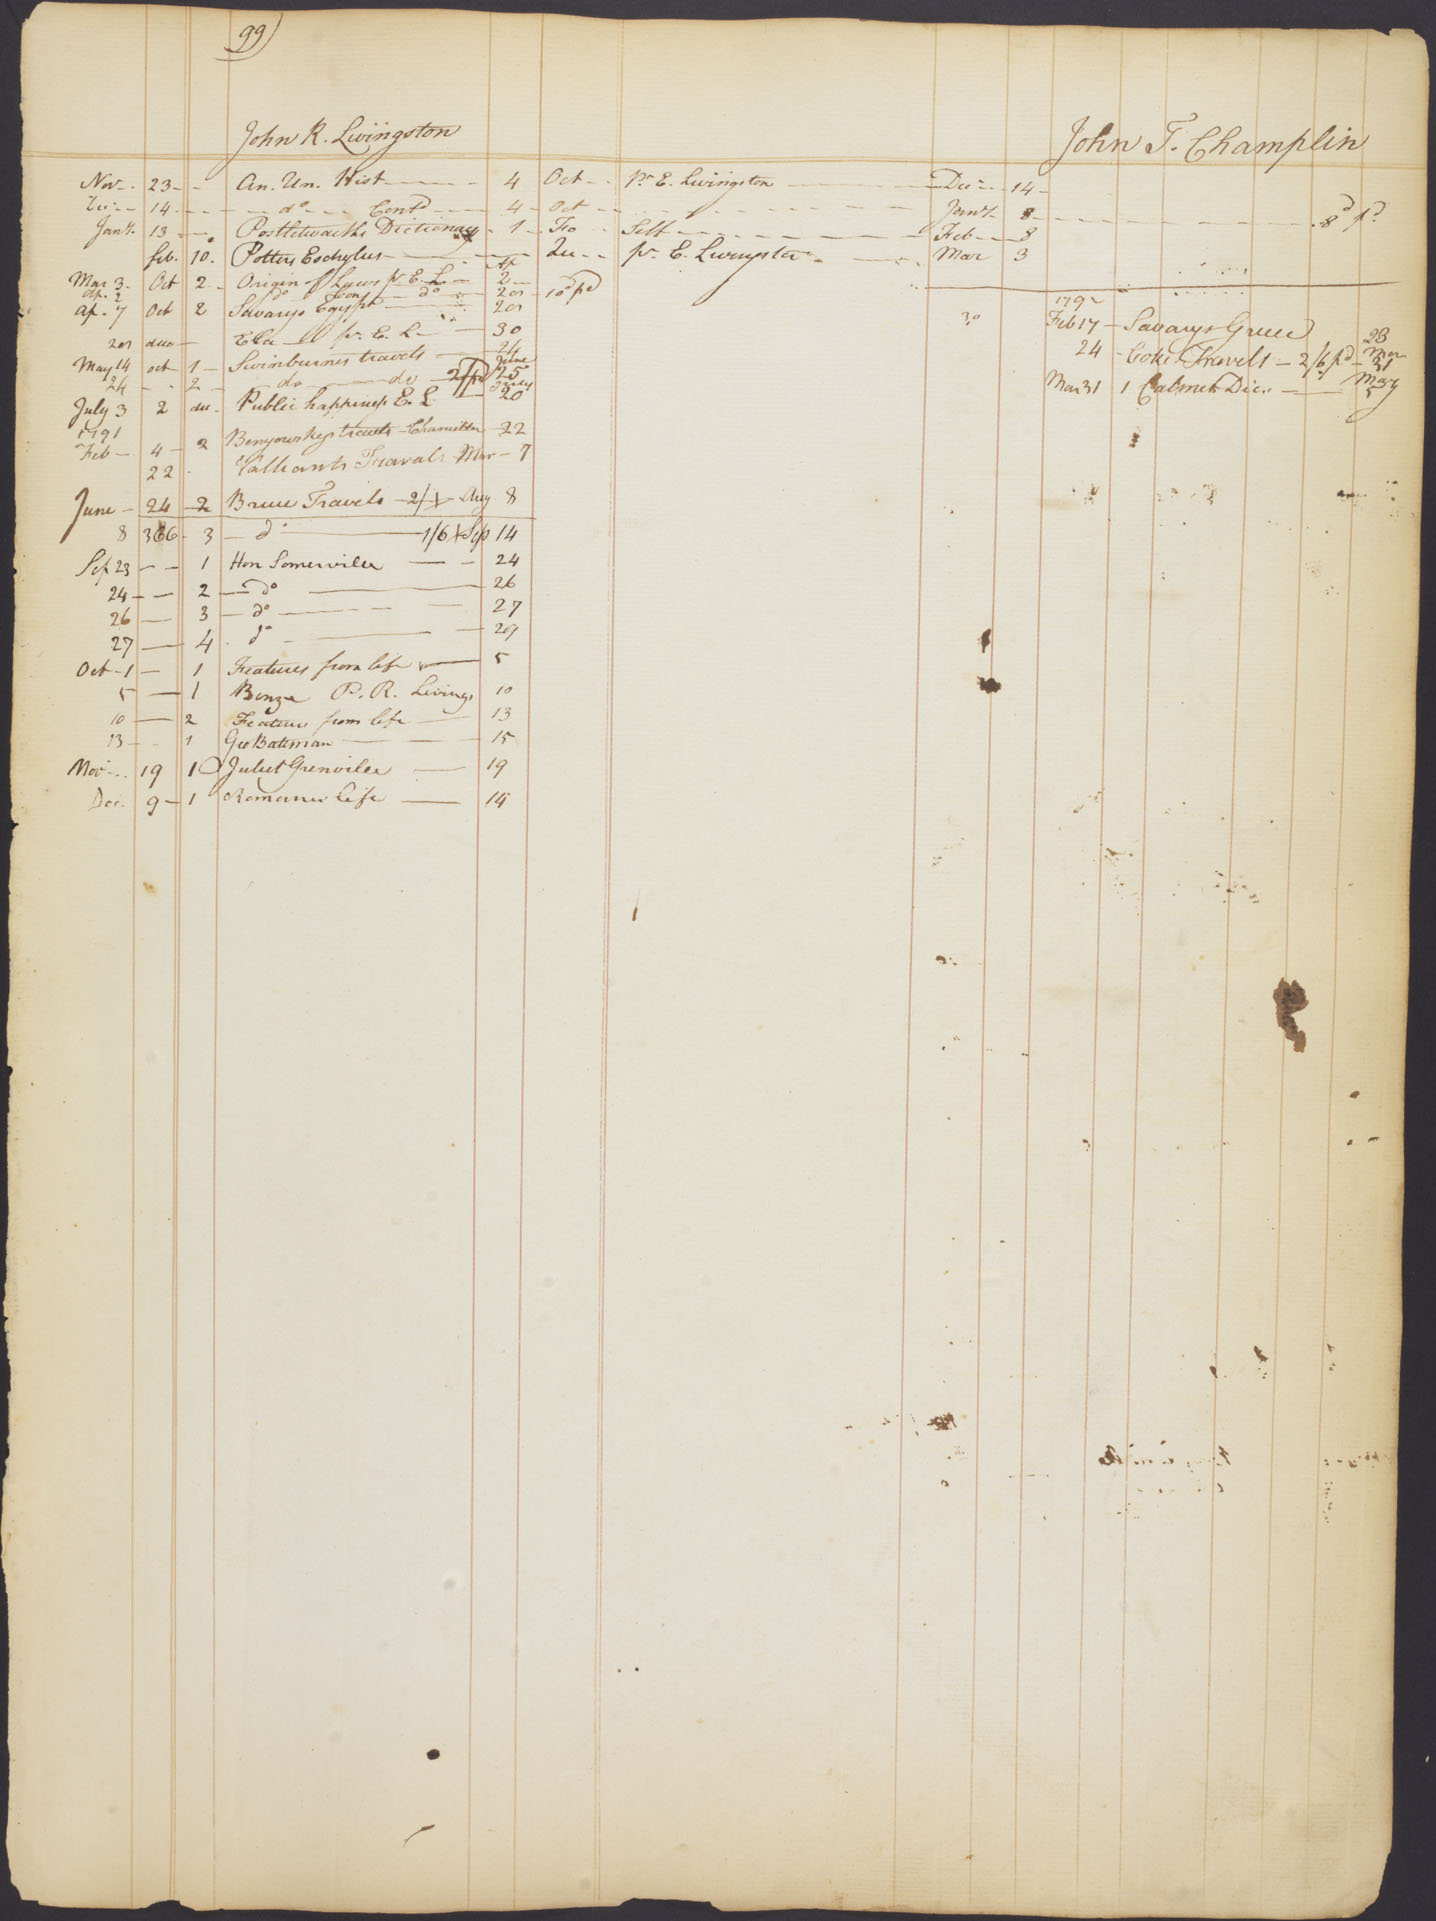 99
John R. Livingston
Nov. 23 - - An. Un. Hist - 4 Oct - Pr. E. Livingston - Dec - 14 -
Dec - 14 - - do Contd - 4 - Oct - Jany. 8 - 8d pd
Jany. 13 - Postletwaith's Dictionary - 1 - Fo Self - Feb - 8
feb. 10. Potters Eschylus - Qu - pr. E. Livingston - Mar 3
Ap
Mar 3. Oct 2 - Origin of Laws pr E. L. - 2 -
Ap. 2 do Cont - do 20 - 10d pd
Ap. 7 Oct 2 Savarys Egypt - 20
20 duo - Ela pr. E. L - 30
May 14 oct - 1 - Swinburnes travels - 24
June
24 - - 2 - do - do - 2/pd 25
July
July 3 2 du - Public happiness E. L 20
1791
Feb - 4 - 2 Benyowskys travels - Chancellor - 22
22 Valliants Travals - Mar - 7
June - 24 - 2 Bruce Travels - 2/ Aug 8
8 366 - 3 - do - 1/6 Sep 14
Sep 23 - - 1 Hon Somervilee - - 24
24 - - 2 - do - 26
26 - 3 - do - - 27
27 - 4 do - 29
Oct - 1 - 1 Features from life - 5
5 - 1 P. R. Livings 10
10 - 2 Features from life - 13
13 - - 1 Geo Bateman - 15
Nov - 19 1 Juliet Grenvilee - 19
Dec. 9 - 1 Romance life - 14
John T. Champlin
30
179
Feb 17 - Savarys Greece 23
Mar
24 - Coxe Travels - 2/6 pd - 31
May
Mar 31 1 Cabinet Dic. - 5